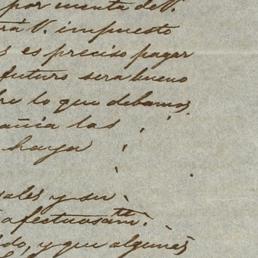 por cuenta de V.
rá V. impuesto
es es preciso pagar
futuro será bueno
re lo que debamos
añia las
haya
sales y su
afectuosamte.
ido, y que algunas